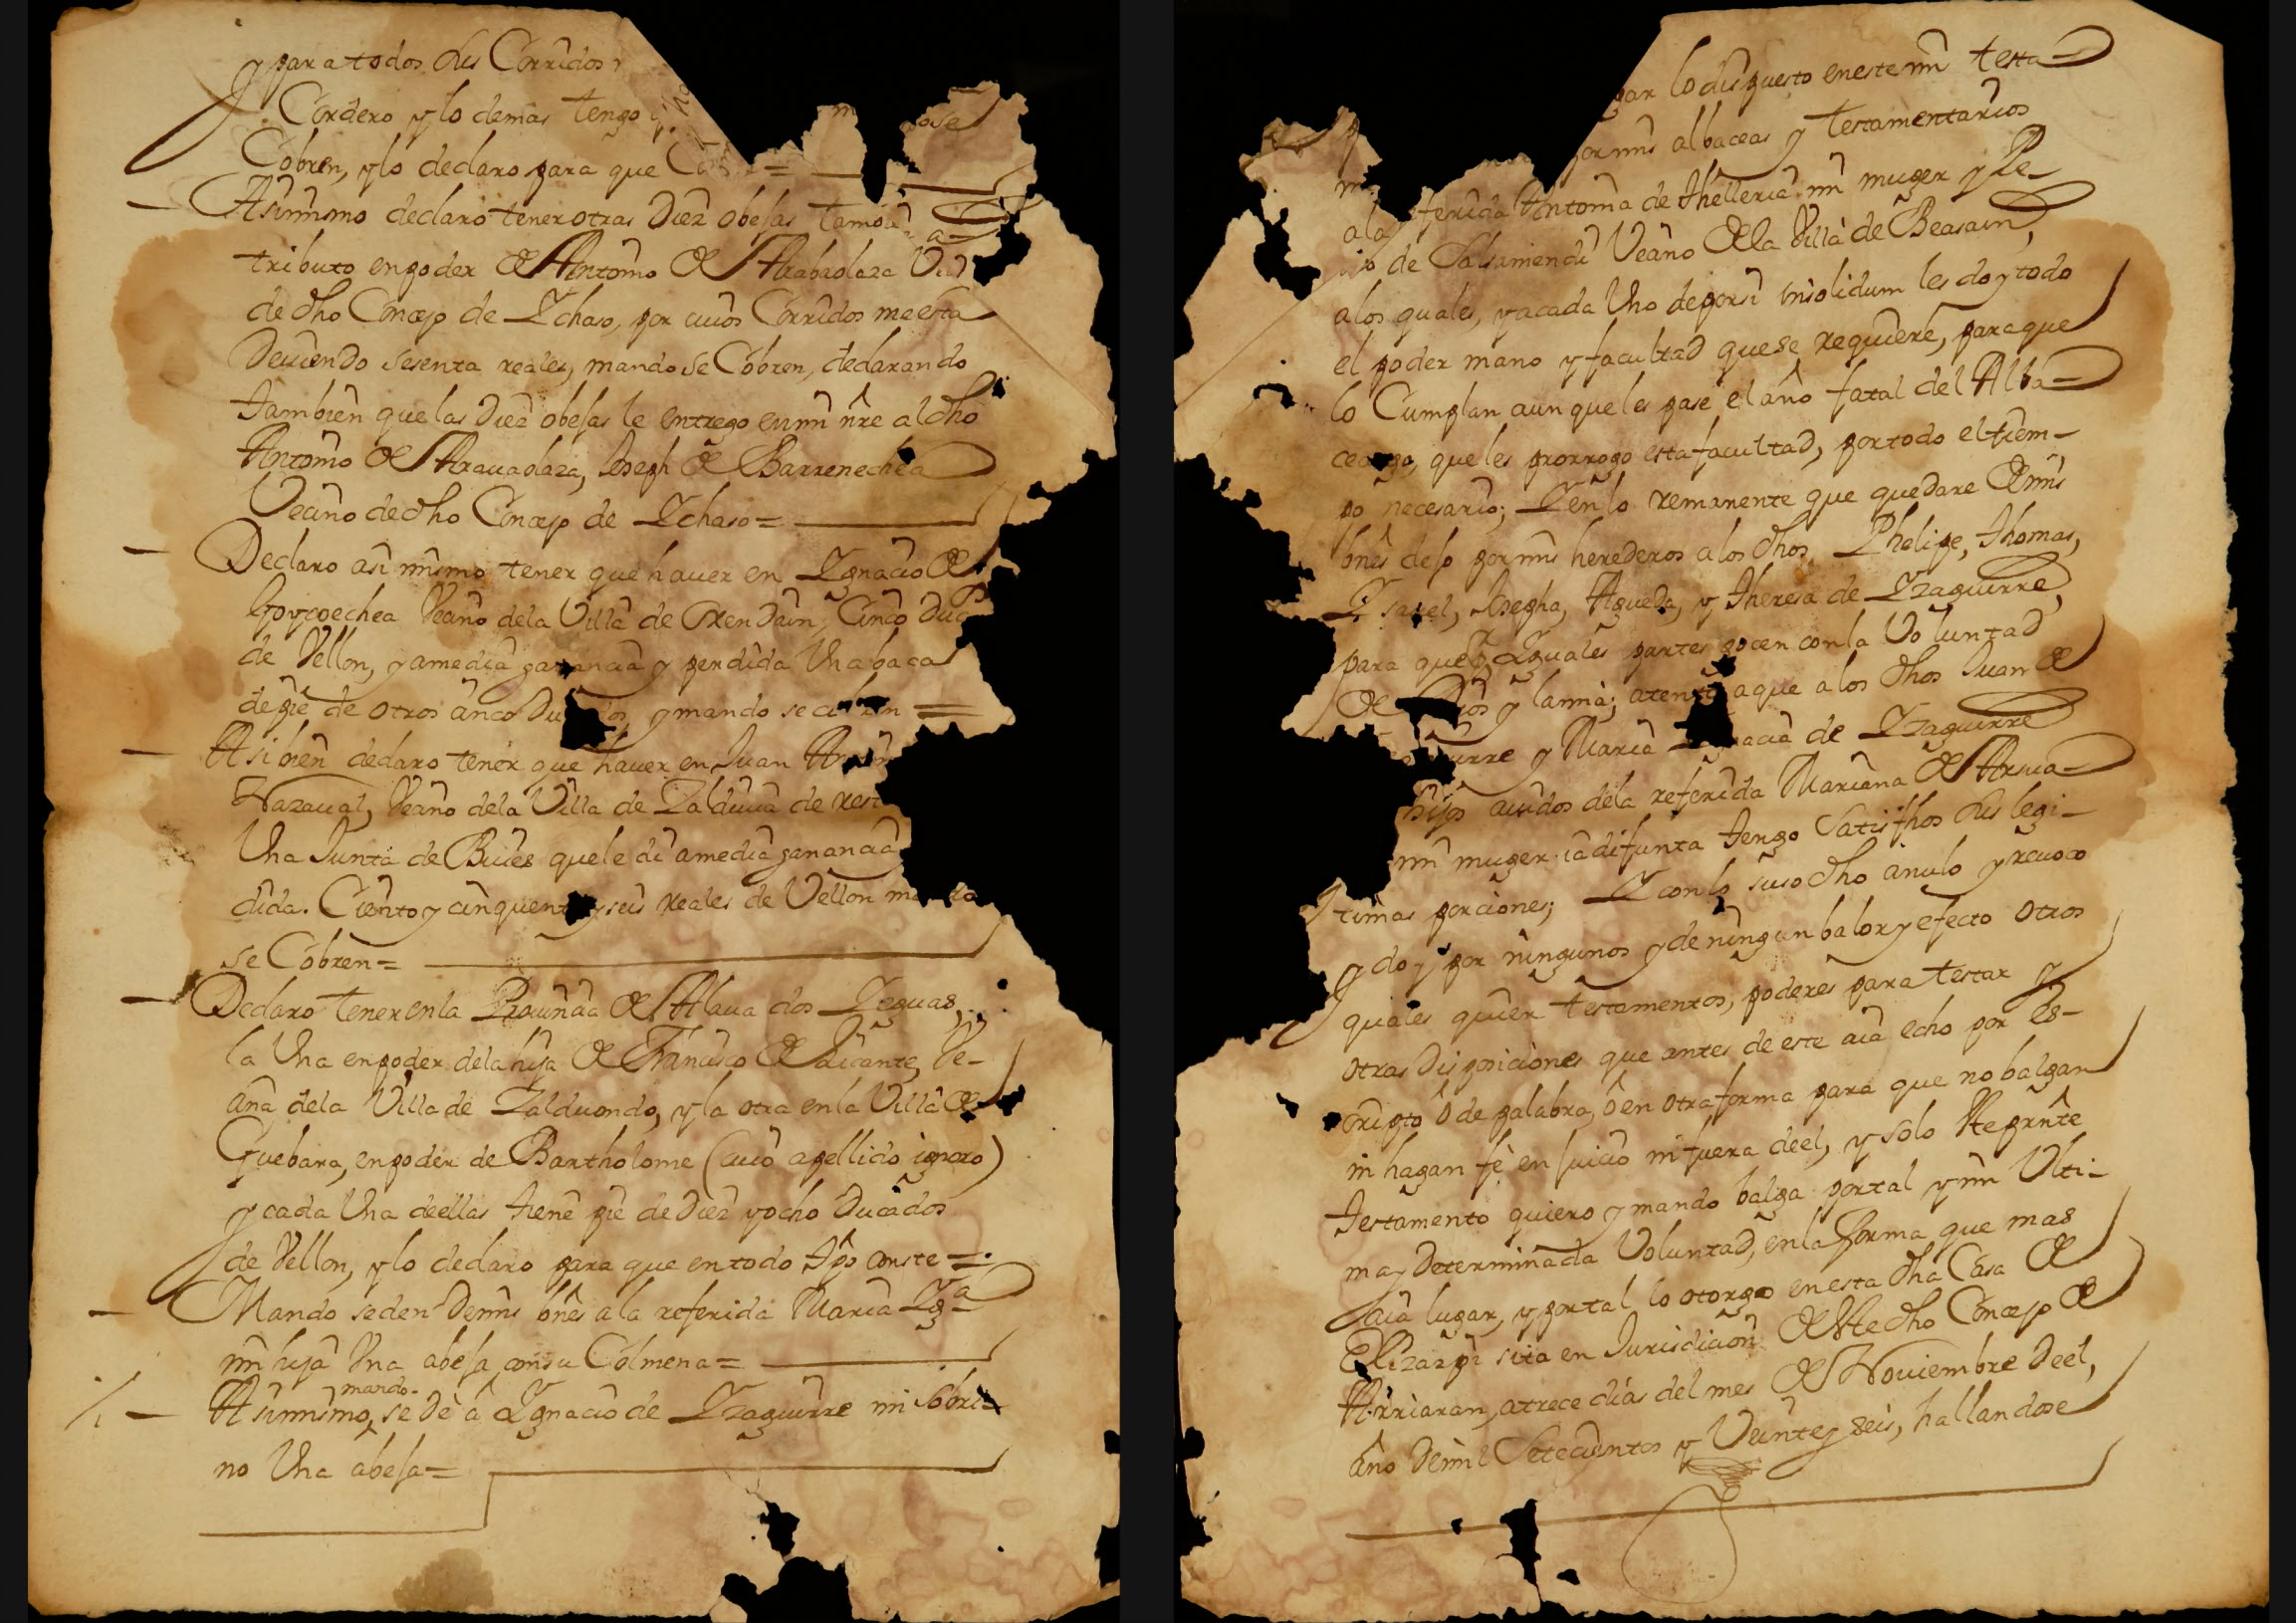 y para todos sus Corridos
Cordero y lo demas tengo
Cobren, y lo declaro para que =
Asimismo declaro tener otras Diez obejas tambien a
tributo en poder de Antonio de Arabaolaza
de dho Concejo de Ychaso, por cuios Corridos me esta
Deuiendo sesenta reales, mando se Cobren, declarando
tambien que las Diez obejas le entrego en mi nre al dho
Antonio de Arauaolaza, Joseph de Barrenechea
Vecino de dho Concejo de Ychaso =
Declaro asi mismo tener que hauer en Ygnacio de
Goycoechea Vecino dela Villa de Orendain, Cinco
de Vellon, y a media ganancia y perdida Una baca
de pie de otros cinco Ducados, y mando se cobren =
Asi bien declaro tener que hauer en Juan
Nazaual, Vecino dela Villa de Zalduuia de
Una Junta de Buies que le di a media ganancia
dida. Ciento y cinquenta y seis reales de Vellon mando
se Cobren =
Declaro tener en la Prouincia de Alaua dos Yeguas,
la Una en poder dela hija de Francisco de Alicante, Ve-
cina dela Villa de Zalduondo, y la otra en la Villa de
Guebara, en poder de Bartholome (cuio apellido ignoro)
y cada Una de ellas tiene pie de Diez y ocho Ducados
de Vellon, y lo declaro para que en todo tpo conste =
Mando se den De mis bnes a la referida Maria Yga
mi hija Una abeja con su Colmena =
Asimismo mando se De â Ygnacio de Yzaguirre mi Sobri-
no Una abeja =
par lo dispuesto en este mi testa-
por mis albaceas y testamentarios
a la referida Antonia de Thelleria mi muger y Pe-
de Salsamendi Vecino de la Villa de Beasain,
a los quales, y a cada Uno de por si insolidum les doy todo
el poder mano y facultad que se requiere, para que
lo Cumplan aun que les pase el año fatal del Alba-
ceazgo, que les prorrogo esta facultad, por todo el tiem-
po necesario; Y en lo remanente que quedare de mis
bnes dejo por mis herederos a los dhos Phelipe, Thomas,
Ysauel, Josepha, Agueda, y Theresa de Yzaguirre,
para que Yguales partes gocen con la Voluntad
de Dios y la mia; atento a que a los dhos Juan de
y Maria Ygnacia de Yzaguirre
hijos auidos dela referida Mariana de Arsua-
mi muger ia difunta tengo Satisfhos sus legi-
timas porciones; Y con lo suso dho anulo y reuoco
y doy por ningunos y de ningun balor y efecto otros
quales quier testamentos, poderes para testar y
otras disposiciones que antes de este aia echo por es-
cripto ô de palabra, ô en otra forma para que no balgan
ni hagan fè en juicio ni fuera de el, y solo Este prnte
testamento quiero y mando balga por tal y mi Ulti-
ma y Determinada Voluntad, en la forma que mas
aia lugar, y por tal lo otorgo en esta dha Casa de
Elizazpi sita en Jurisdicion de Este dho Concejo de
Arriaran, a trece dias del mes de Noviembre De el,
año De mil Setecientos y Veinte y seis, hallandose